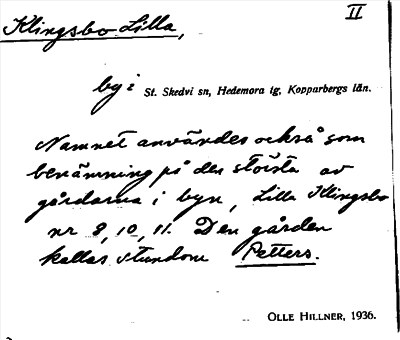 Klingsbo Lilla, II
by i St. Skedvi sn, Hedemora tg, Kopparbergs län.
Namnet användes också som
benämning på den största av
gårdarna i byn, Lilla Klingsbo
nr 8, 10, 11. Den gården
kallas stundom Petters.
OLLE HILLNER, 1936.